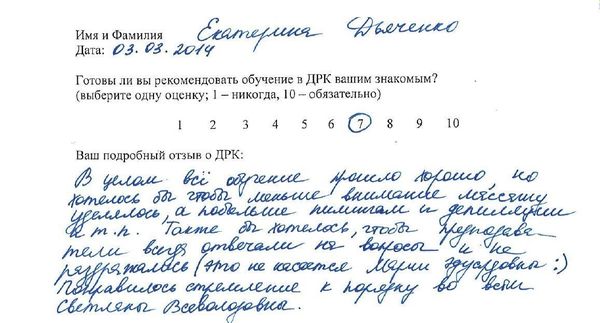 Имя и Фамилия Екатерина Дьяченко
Дата: 03.03.2014
Готовы ли вы рекомендовать обучение в ДРК вашим знакомым?
(выберите одну оценку; 1 – никогда, 10 – обязательно)
1 2 3 4 5 6 7 8 9 10
Ваш подробный отзыв о ДРК:
В целом всё обучение прошло хорошо но
хотелось бы чтобы меньше внимание массажу
уделялось, а побольше пилингам и депиляции
и т.п. Также бы хотелось, чтобы преподава
тели всегда отвечали на вопросы и не
раздражалось (это не касается Марии Эдуардовны :)
Понравилось стремление к порядку во всём
Светланы Всеволодовны.